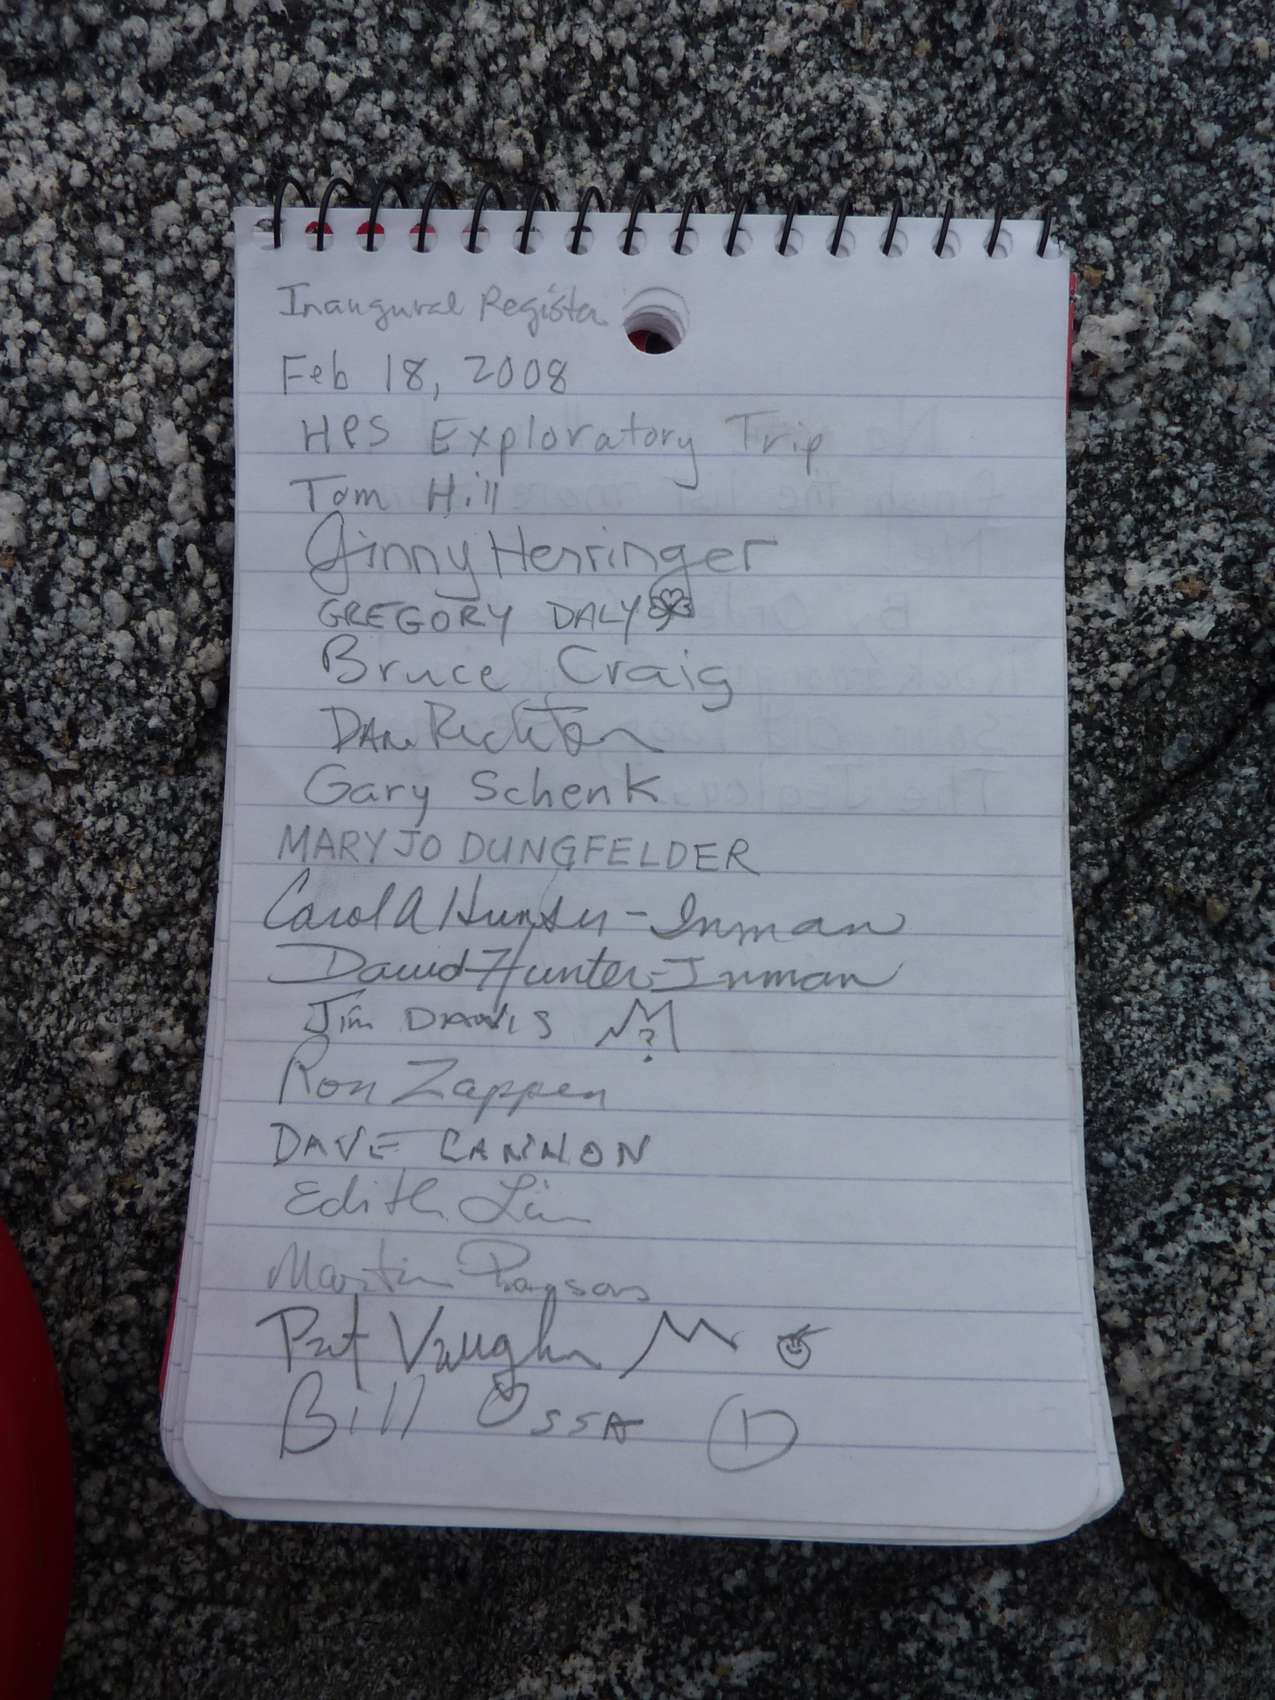 Inaugural Register
Feb 18, 2008
HPS Exploratory Trip
Tom Hill
Ginny Herringer
GREGORY DALY
Bruce Craig
DAN Richter
Gary Schenk
MARY JO DUNGFELDER
Carol A Hunter-Inman
David Hunter-Inman
Jim DAVIS ?
Ron Zappen
DAVE CANNON
Edith Liu
Martin Parsons
Pat Vaughn
Bill OssA 1